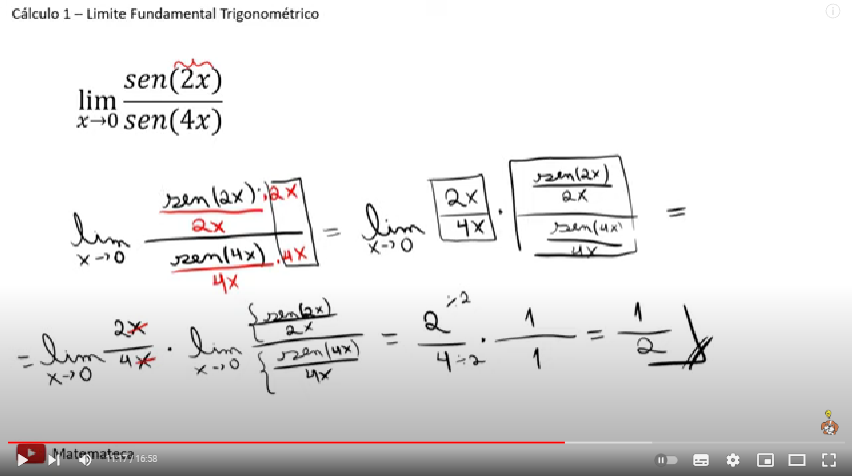 Cálculo 1 – Limite Fundamental Trigonométrico
lim x→0 sen(2x) / sen(4x)
lim x→0 (sen(2x) / 2x · 2x) / (sen(4x) / 4x · 4x) = lim x→0 2x/4x · (sen(2x)/2x) / (sen(4x)/4x) =
= lim x→0 2x/4x · lim x→0 (sen(2x)/2x) / (sen(4x)/4x) = 2÷2 / 4÷2 · 1/1 = 1/2
Matemateca
11:17 / 16:58